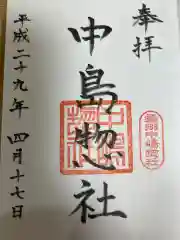 奉拝
中島惣社
平成二十九年 四月十七日